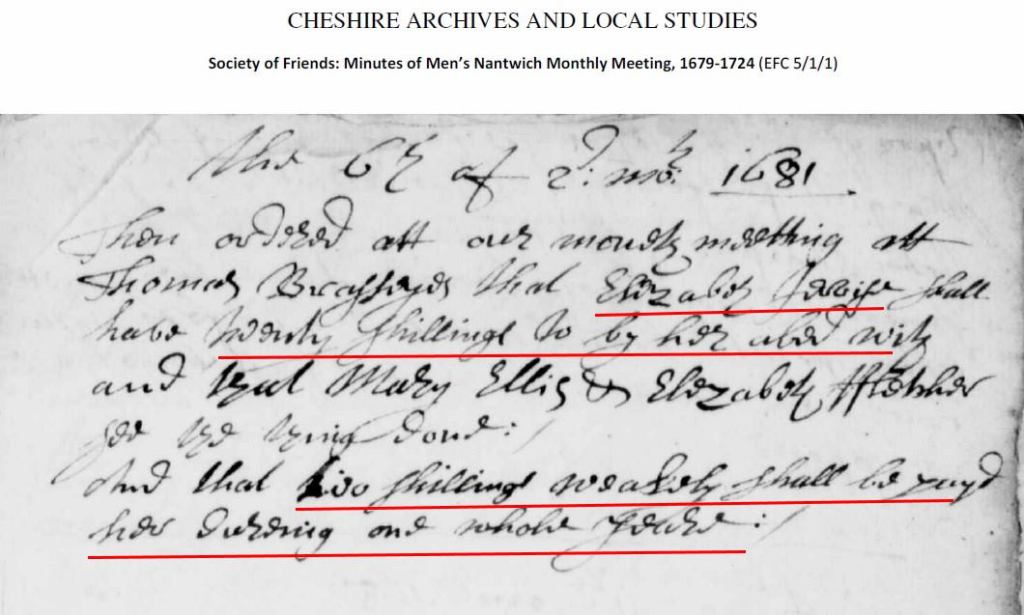 CHESHIRE ARCHIVES AND LOCAL STUDIES
Society of Friends: Minutes of Men's Nantwich Monthly Meeting, 1679-1724 (EFC 5/1/1)
the 6th of 2d: mo:th 1681
Then ordered att our month meetting att
Thomas that Elizabeth shall
have twenty shillings to by her abed with
and that Mary Ellis & Elizabeth ffletcher
see the thing done:
And that two shillings weakely shall be payd
her dureing one whole yeare: